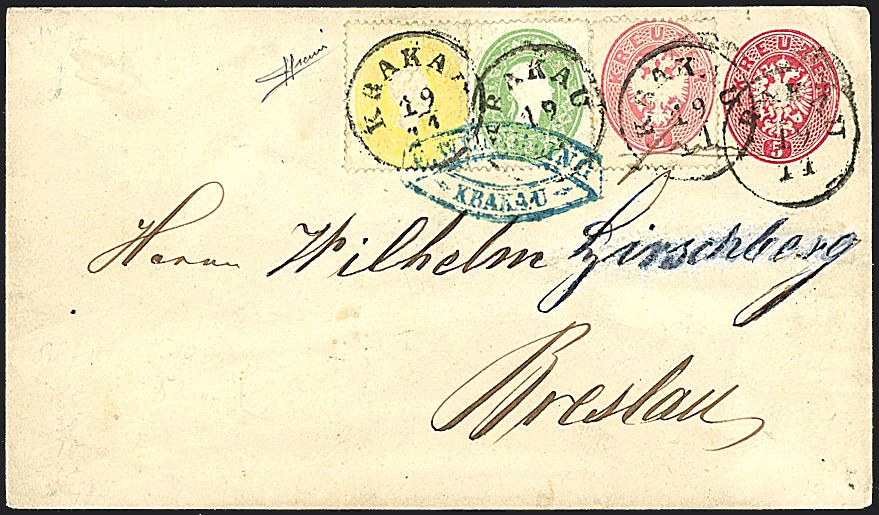 KRAKAU
19
11
KRAKAU
19
KREUZER
KRAKAU
19
11
5
KREUZER
KRAKAU
19
11
5
KRAKAU
Herrn Wilhelm Hirschberg
Breslau